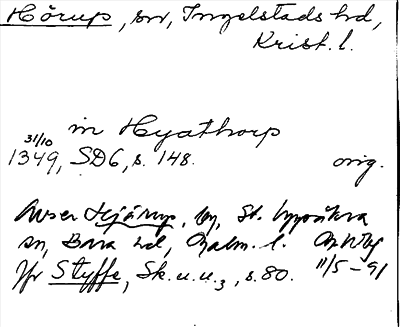 Hörup, sn, Ingelstads hd,
Krist. l.
in Hyathorp
31/10
1349, SD6, s. 148. orig.
Avser Hjärup, by, St. Uppåkra
sn, Bara hd, Malm. l.
Jfr Styffe, Sk. u. u.3, s. 80. 11/5-91